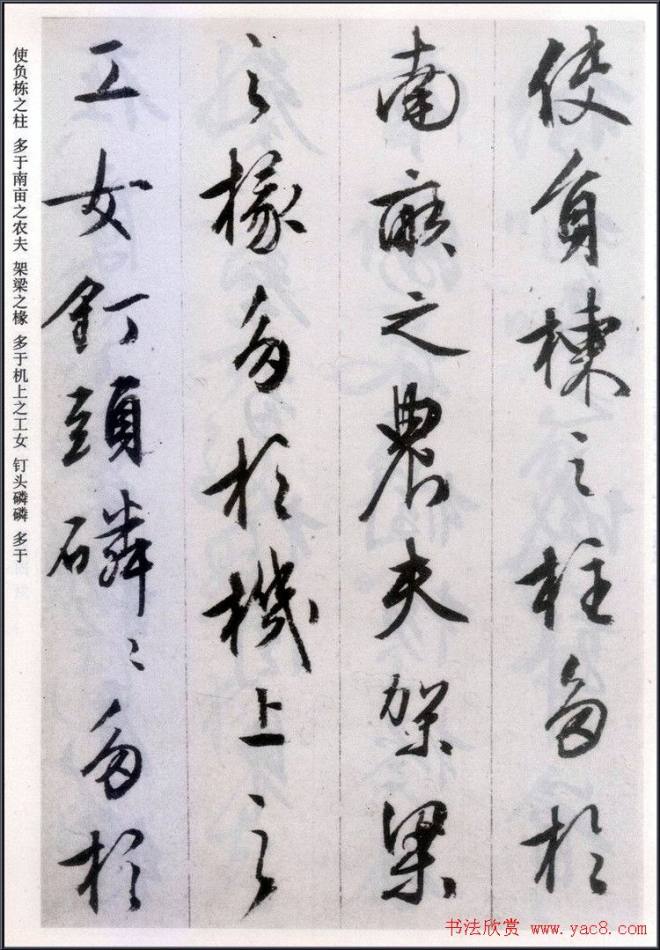 使負棟之柱多於
南畝之農夫架梁
之椽多於機上之
工女釘頭磷〻多於
使负栋之柱 多于南亩之农夫 架梁之椽 多于机上之工女 钉头磷磷 多于
书法欣赏 www.yac8.com